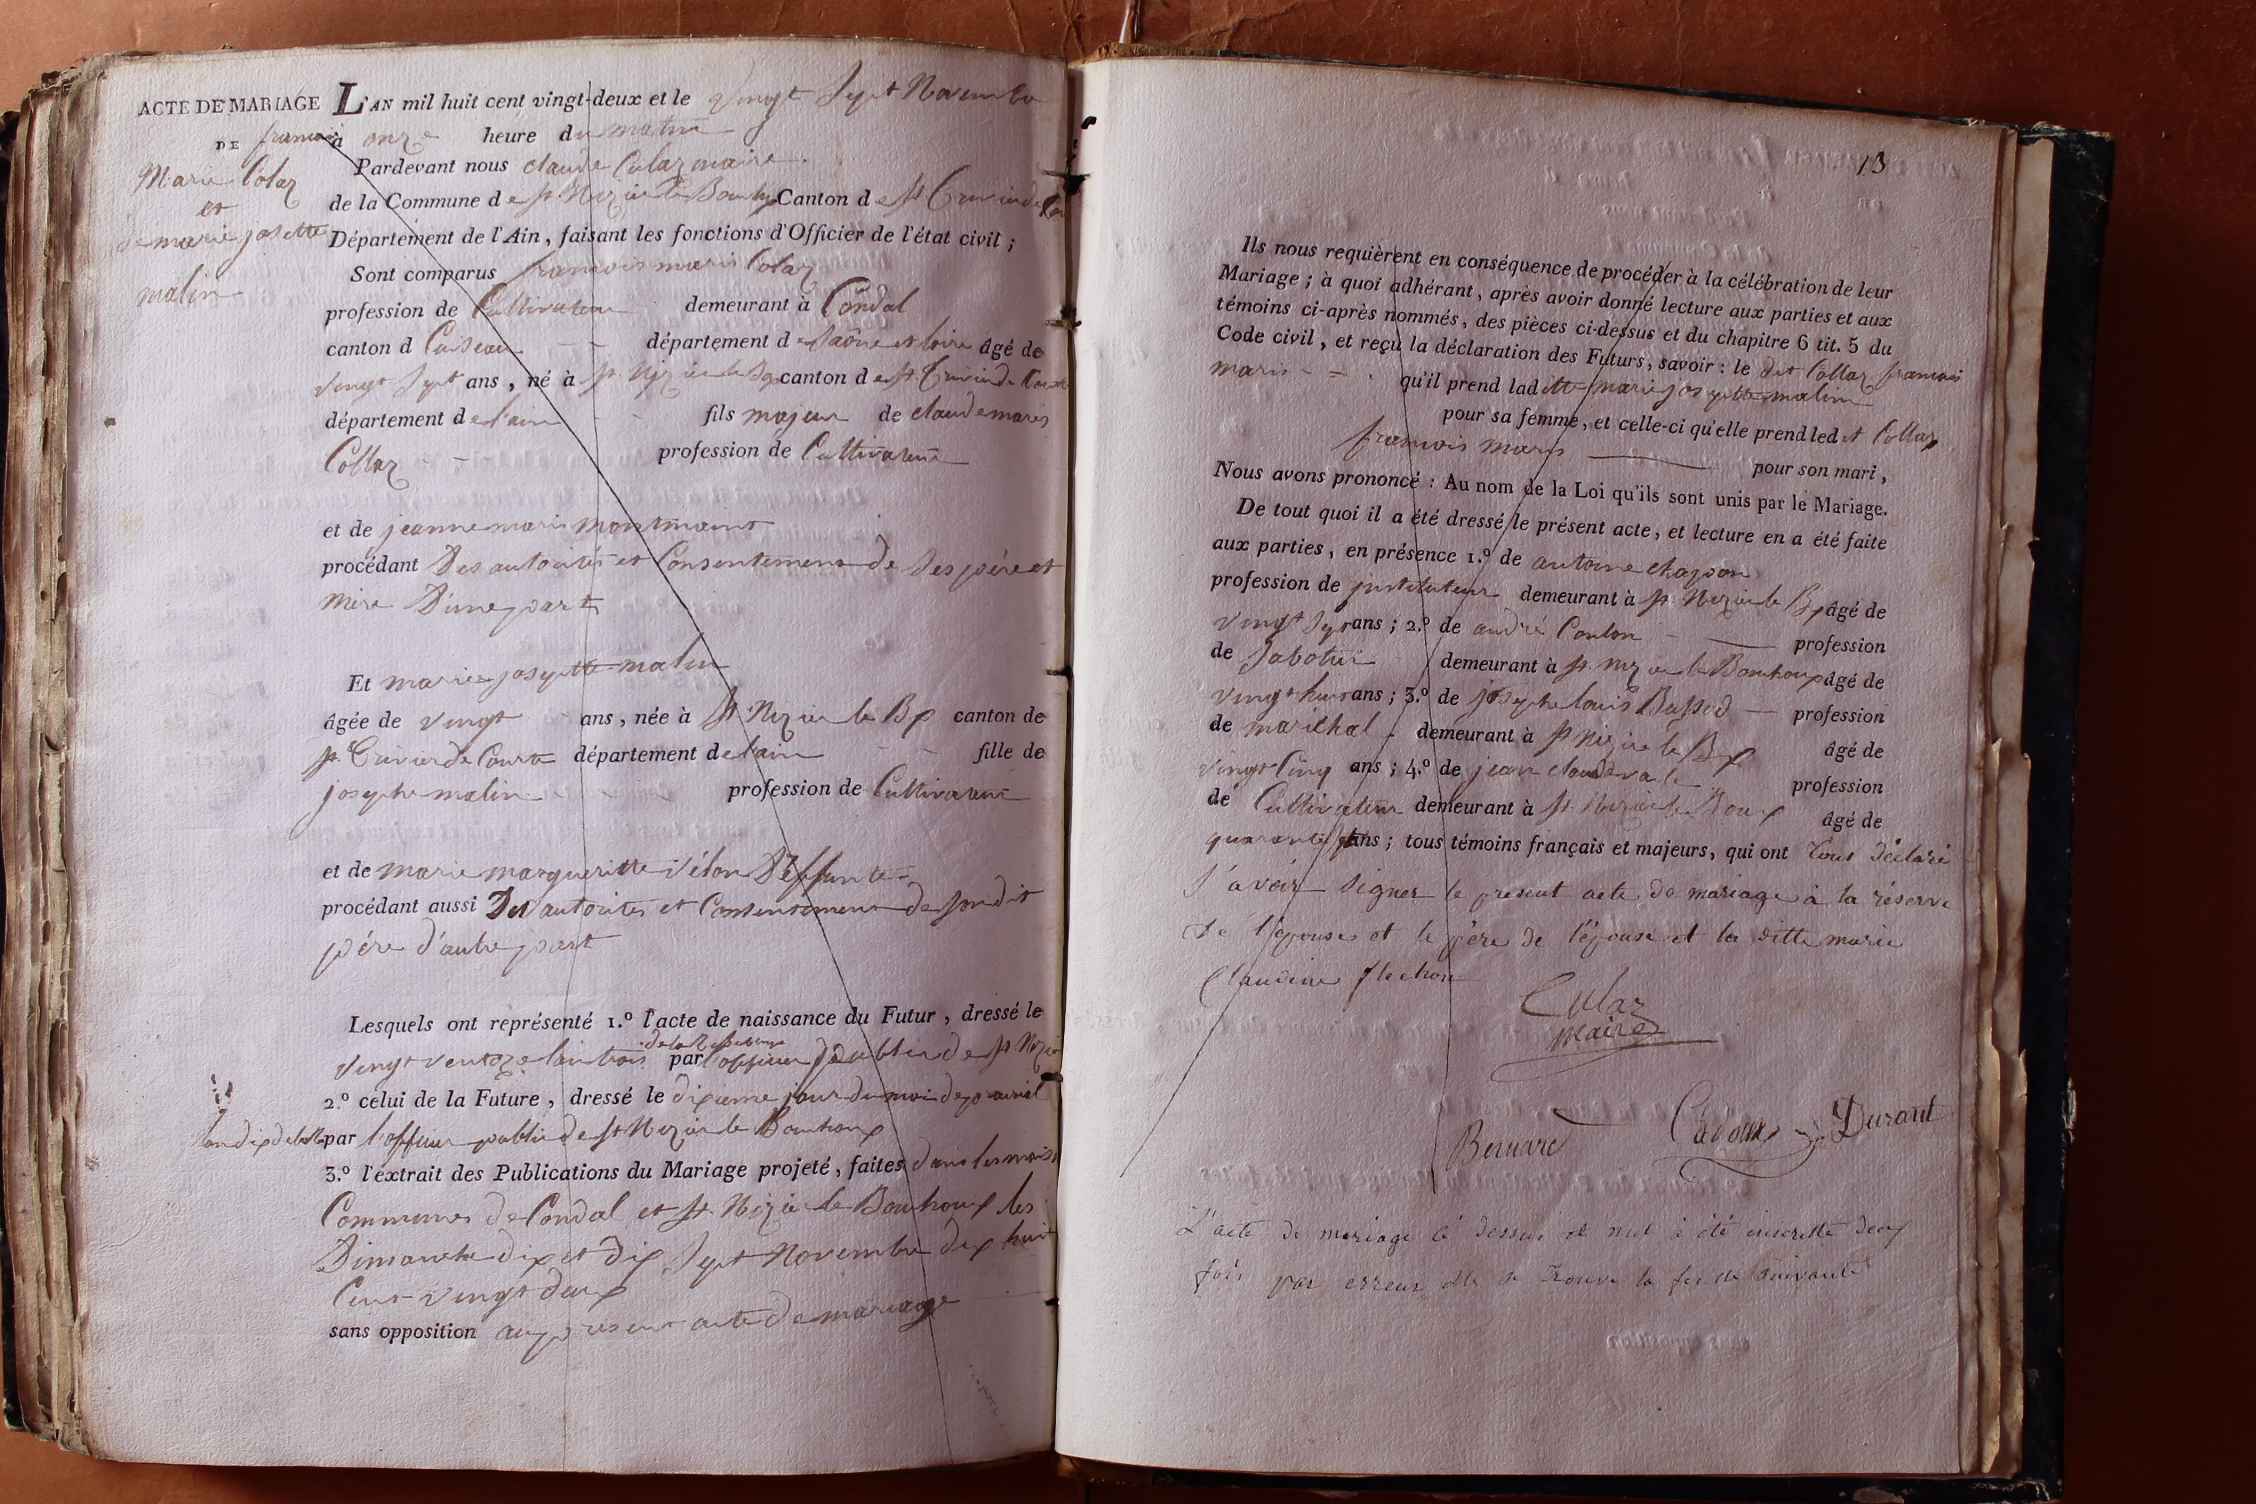 ACTE DE MARIAGE
DE francois
Marie Colaz
et
de marie josette
malin
L'AN mil huit cent vingt-deux et le vingt Sept Novembre
à onze heure du matin
Pardevant nous claude Culaz maire.
de la Commune de st Nizier le Bouhoux Canton de st Trivier de Cour
Département de l'Ain, faisant les fonctions d'Officier de l'état civil ;
Sont comparus francois marie Colaz
profession de Cultivateur demeurant à Condal
canton d Cuiseau département de Saône et loire âgé de
vingt Sept ans, né à st Nizier le Bx canton de st Trivier de Courte
département de l'ain fils majeur de claude marie
Collaz profession de Cultivateur
et de jeanne marie montmaint
procédant Des autorités et Consentement de Ses père et
mère D'une part
Et marie josyette malin
âgée de vingt ans, née à st Nizier le Bx canton de
st Trivier de Courte département de l'ain fille de
josephe malin profession de Cultivateur
et de marie margueritte vélon Deffunte
procédant aussi Des autorités et Consentement de son dit
père d'autre part
Lesquels ont représenté 1.º l'acte de naissance du Futur, dressé le
de la Republique
vingt ventoze l'an trois par l'officier Publier de st Nizier
2.º celui de la Future, dressé le dixieme jour du moi de prairial
l'an dix de la Rp par l'officier public de st Nizier le Bouhoux
3.º l'extrait des Publications du Mariage projeté, faites dans les
Communes de Condal et st Nizier le Bouhoux les
Dimanche dix et dix Sept Novembre dix huit
Cent vingt deux
sans opposition au present acte de mariage
13
Ils nous requièrent en conséquence de procéder à la célébration de leur
Mariage ; à quoi adhérant, après avoir donné lecture aux parties et aux
témoins ci-après nommés, des pièces ci-dessus et du chapitre 6 tit. 5 du
Code civil, et reçu la déclaration des Futurs, savoir : le dit Collaz francois
marie qu'il prend laditte marie josyette malin
pour sa femme, et celle-ci qu'elle prend ledit Collaz
francois marie pour son mari,
Nous avons prononcé : Au nom de la Loi qu'ils sont unis par le Mariage.
De tout quoi il a été dressé le présent acte, et lecture en a été faite
aux parties, en présence 1.º de antoine chapon
profession de justituteur demeurant à st Nizier le Bx âgé de
vingt Sept ans ; 2.º de andré Coulon profession
de Sabotier demeurant à st nizier le Bouhoux âgé de
vingt huit ans ; 3.º de josephe louis Bussod profession
de marechal demeurant à st nizier le Bx âgé de
vingt Cinq ans ; 4.º de jean claude profession
de Cultivateur demeurant à st Nizier le Boux âgé de
quarante ans ; tous témoins français et majeurs, qui ont tous déclaré
s'avoir signer le present acte de mariage à la réserve
de l'épouse et le père de l'épouse et la ditte marie
Claudine flechon
Culaz
maire
Bernard Cadoux Durant
L'acte de mariage ci dessus et nul à été inscritte deux
fois par erreur elle se trouve la feuille suivante